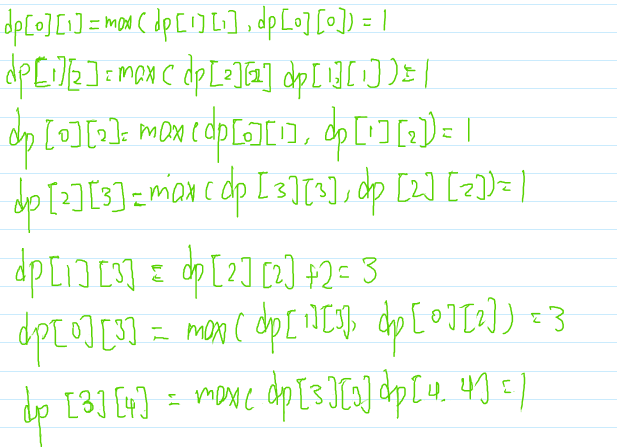 dp[0][1] = max( dp[1][1], dp[0][0]) = 1
dp[1][2] = max( dp[2][2] dp[1][1]) = 1
dp[0][2] = max(dp[0][1], dp[1][2]) = 1
dp[2][3] = max(dp[3][3], dp[2][2]) = 1
dp[1][3] = dp[2][2] +2 = 3
dp[0][3] = max( dp[1][3], dp[0][2]) = 3
dp [3][4] = max( dp[3][3] dp[4. 4] = 1